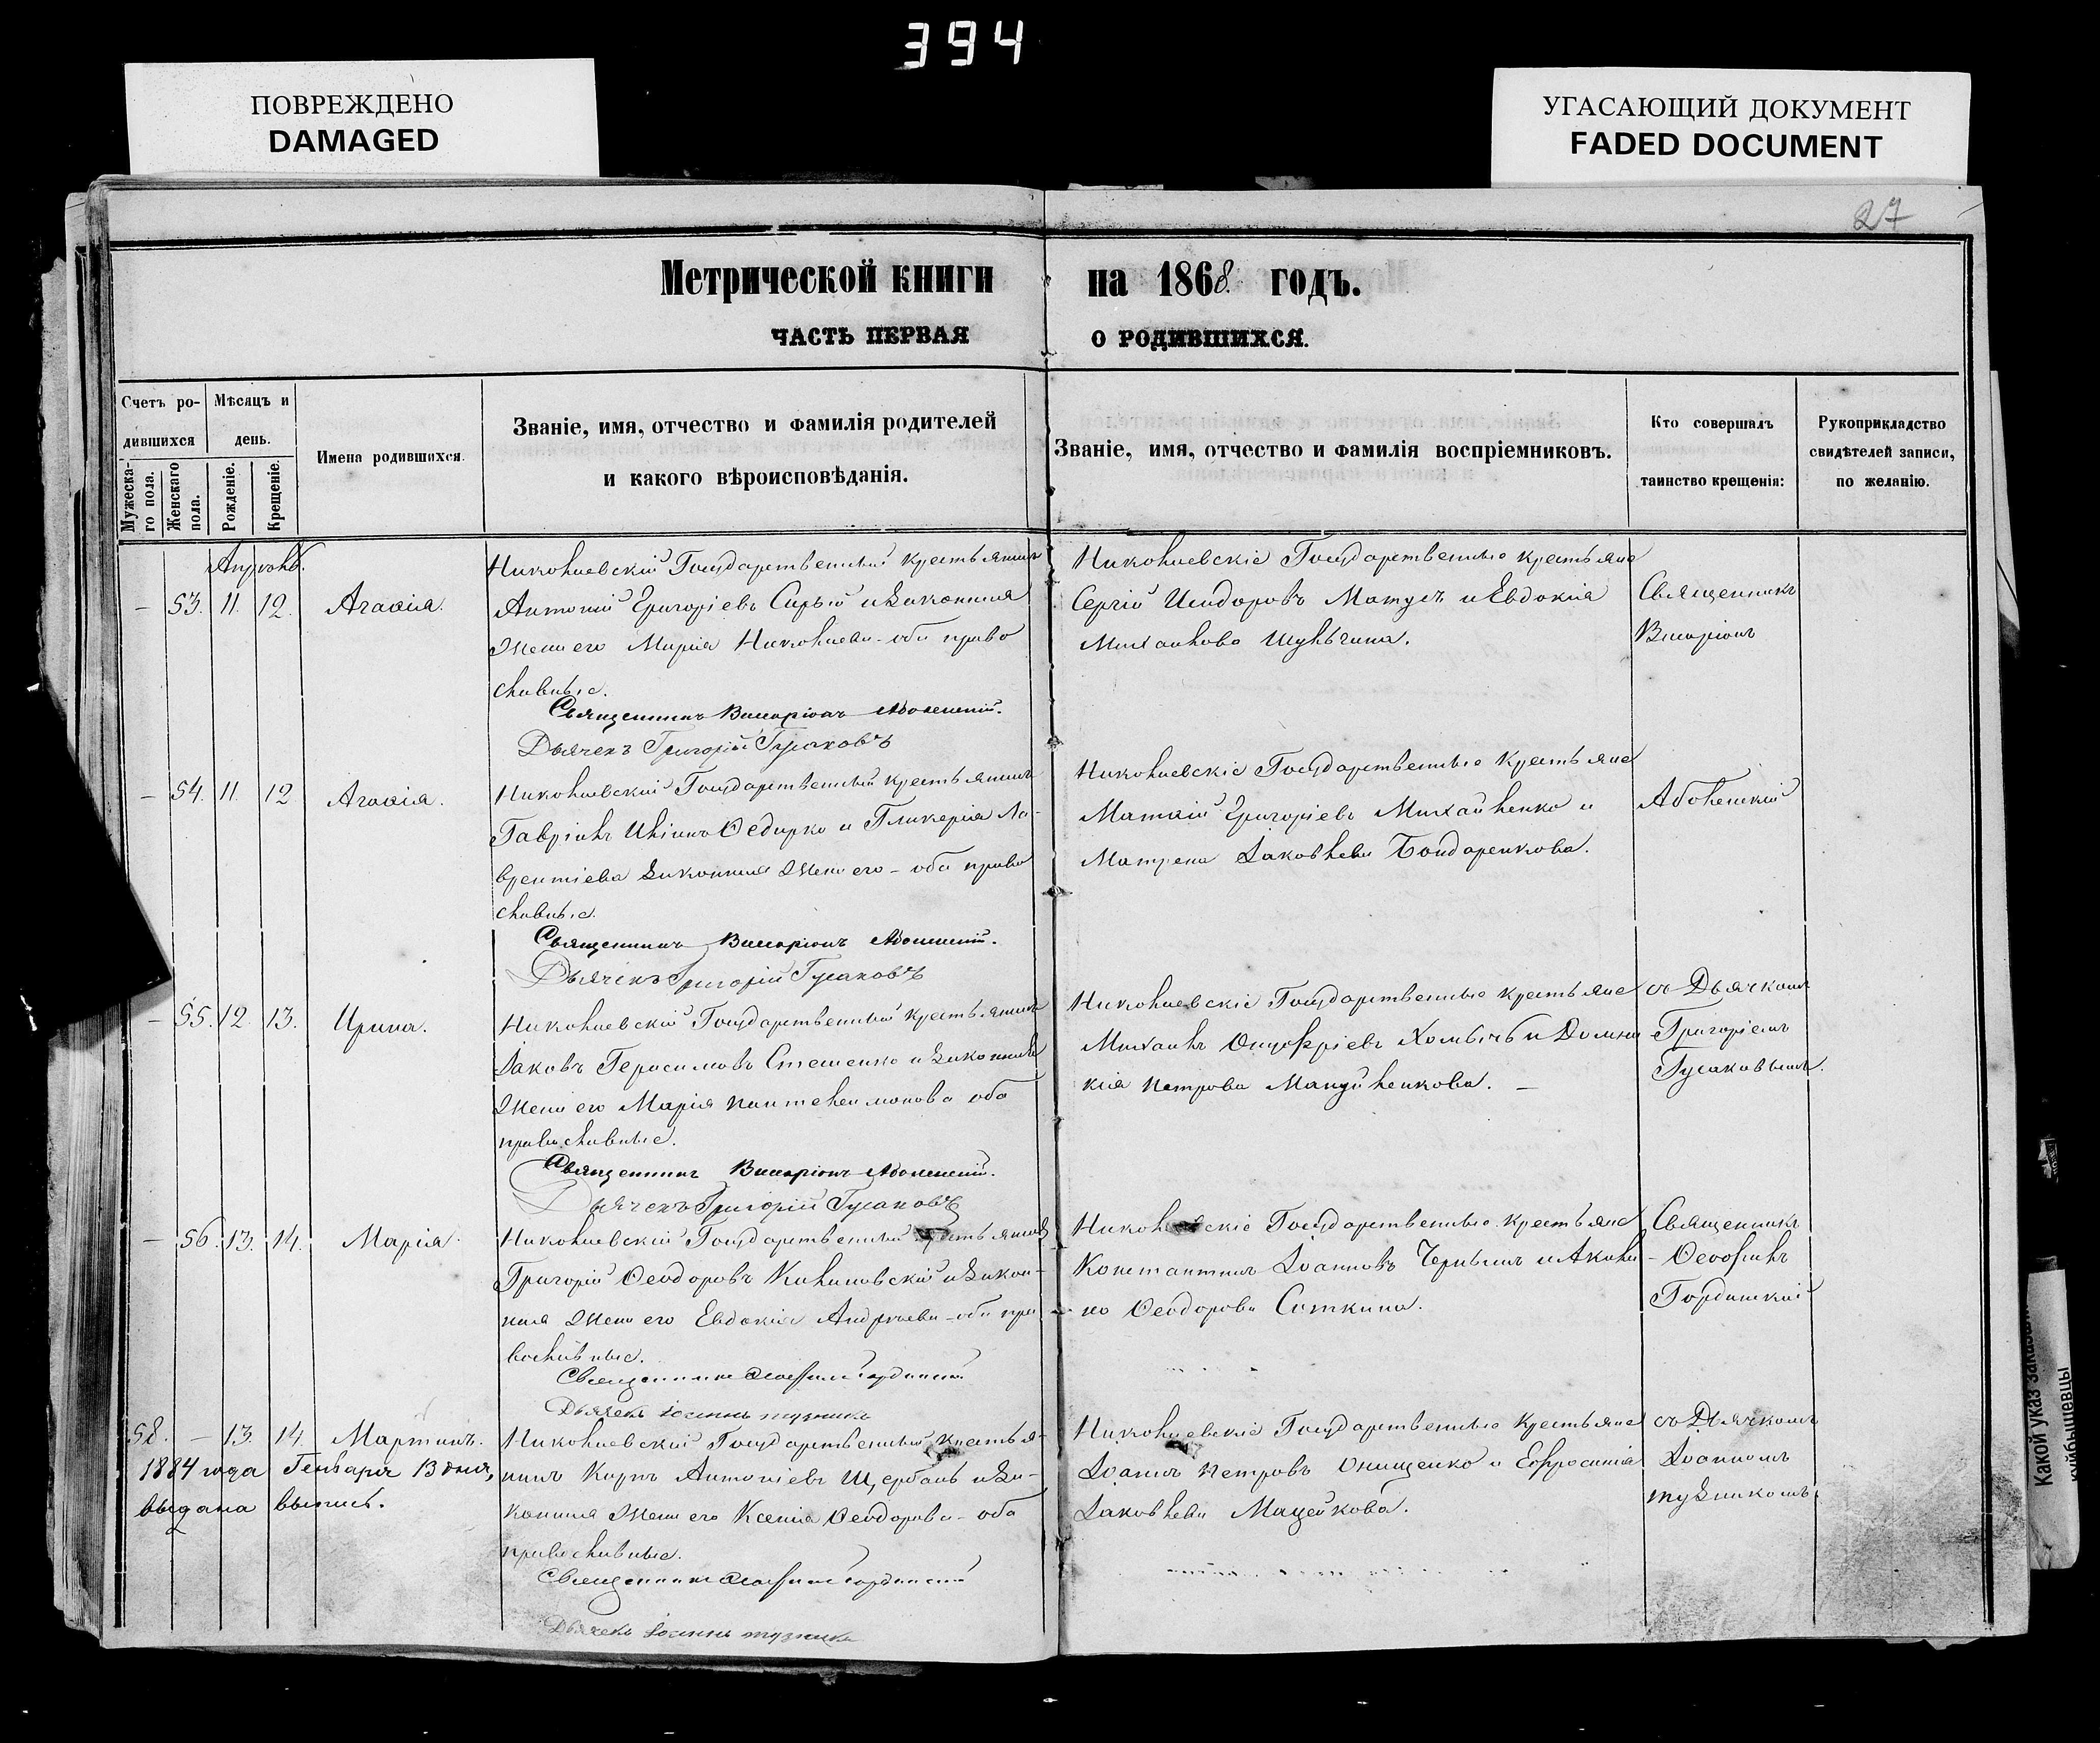 394
ПОВРЕЖДЕНО
DAMAGED
УГАСАЮЩИЙ ДОКУМЕНТ
FADED DOCUMENT
27
Метрической книги на 1868. годъ.
ЧАСТЬ ПЕРВАЯ О РОДИВШИХСЯ.
Счетъ ро-
дившихся
Мужеска-
го пола.
Женскаго
пола.
Мѣсяцъ и
день.
Рожденіе.
Крещеніе.
Имена родившихся.
Званіе, имя, отчество и фамилія родителей
и какого вѣроисповѣданія.
Званіе, имя, отчество и фамилія воспріемниковъ.
Кто совершалъ
таинство крещенія:
Рукоприкладство
свидѣтелей записи,
по желанію.
Апрѣль.
— 53. 11. 12. Агаѳія.
Николаевскій Государственный крестьянинъ
Антоній Григоріевъ Сирый и законная
жена его Марія Николаева – оба право
славные.
Священникъ Виссаріонъ
Дьячекъ Григорій Гусаковъ
Николаевскіе Государственные крестьяне
Сергій Исидоровъ Матусъ и Евдокія
Михаилова Шульгина.
Священникъ
Виссаріонъ
— 54. 11. 12 Агаѳія.
Николаевскій Государственный крестьянинъ
Гавріилъ Иліинъ Ѳедирко и Гликерія Ла-
врентіева законная жена его – оба право
славные.
Священникъ Виссаріонъ
Дьячекъ Григорій Гусаковъ
Николаевскіе Государственные крестьяне
Матѳій Григоріевъ Михайленко и
Матрена Іаковлева Бондаренкова.
— 55. 12. 13. Ирина.
Николаевскій Государственный крестьянинъ
Іаковъ Герасимовъ Стешенко и законная
жена его Марія Пантелеимонова оба
православные.
Священникъ Виссаріонъ
Дьячекъ Григорій Гусаковъ
Николаевскіе Государственные крестьяне
Михаилъ Онуфріевъ и Домни
кія Петрова Мануйленкова. —
съ Дьячкомъ
Григоріемъ
Гусаковымъ.
— 56. 13. 14. Марія.
Николаевскій Государственный крестьянинъ
Григорій Ѳеодоровъ Калиновскій и закон-
ная жена его Евдокія Андреева – оба пра
вославные.
Священникъ Ѳеофилъ
Дьячекъ Іоаннъ
Николаевскіе Государственные крестьяне
Константинъ Іоанновъ и Акили
на Ѳеодорова Ситкина.
Священникъ
Ѳеофилъ
58. — 13. 14. Мартинъ.
1884 года Генваря 13 дня,
выдана выпись.
Николаевскій Государственный крестья-
нинъ Карпъ Антоніевъ Щербань и за-
конная жена его Ксенія Ѳеодорова – оба
православные.
Священникъ Ѳеофилъ
Дьячекъ Іоаннъ
Николаевскіе Государственные крестьяне
Іоаннъ Петровъ Онищенко и Ефросинія
Іаковлева Мацейкова.
съ Дьячкомъ
Іоанномъ
Какой указ
куйбышевцы